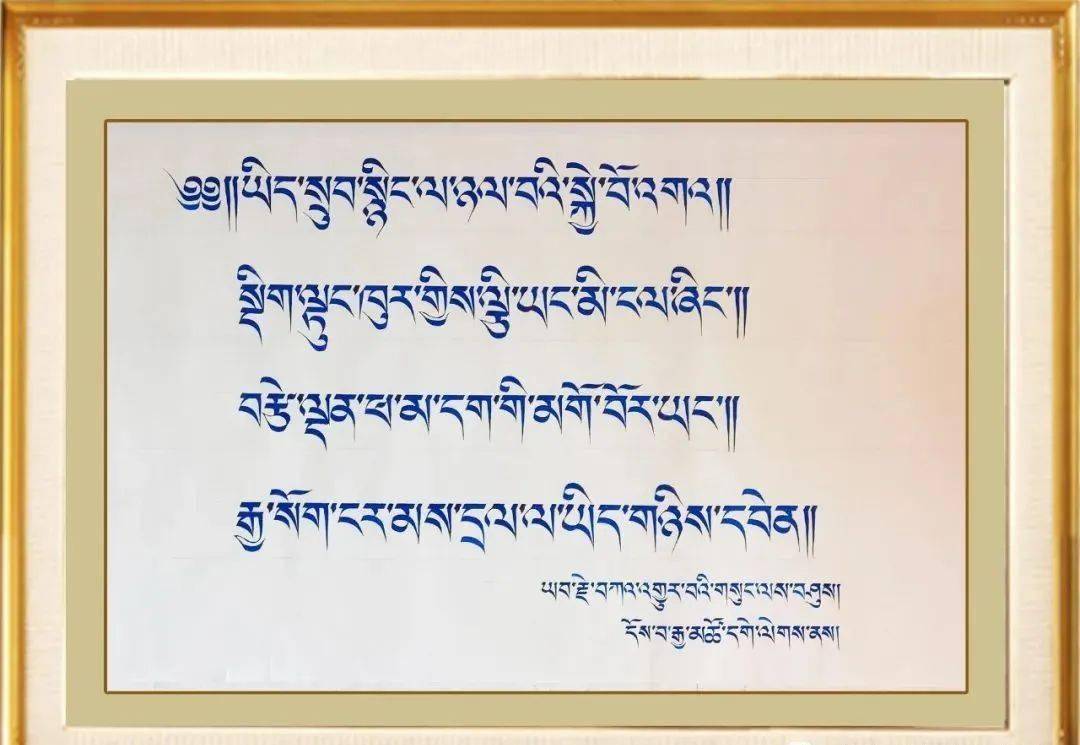 ༄༅།།ཡིད་སྲུབ་སྙིང་ལ་ཉལ་བའི་སྐྱེ་བོ་འགའ།།
སྡིག་ལྟུང་ཁུར་གྱིས་ལྕི་ཡང་མི་ངལ་ཞིང་།།
བརྩེ་ལྡན་ཕ་མ་དག་གི་མགོ་བོར་ཡང་།།
རྒྱ་སོག་ངར་མས་དྲལ་ལ་ཡིད་གཉིས་དབེན།།
ཡབ་རྗེ་བཀའ་འགྱུར་བའི་གསུང་ལས་བཤུས།
དོས་བ་རྒྱ་མཚོ་དགེ་ལེགས་ནས།